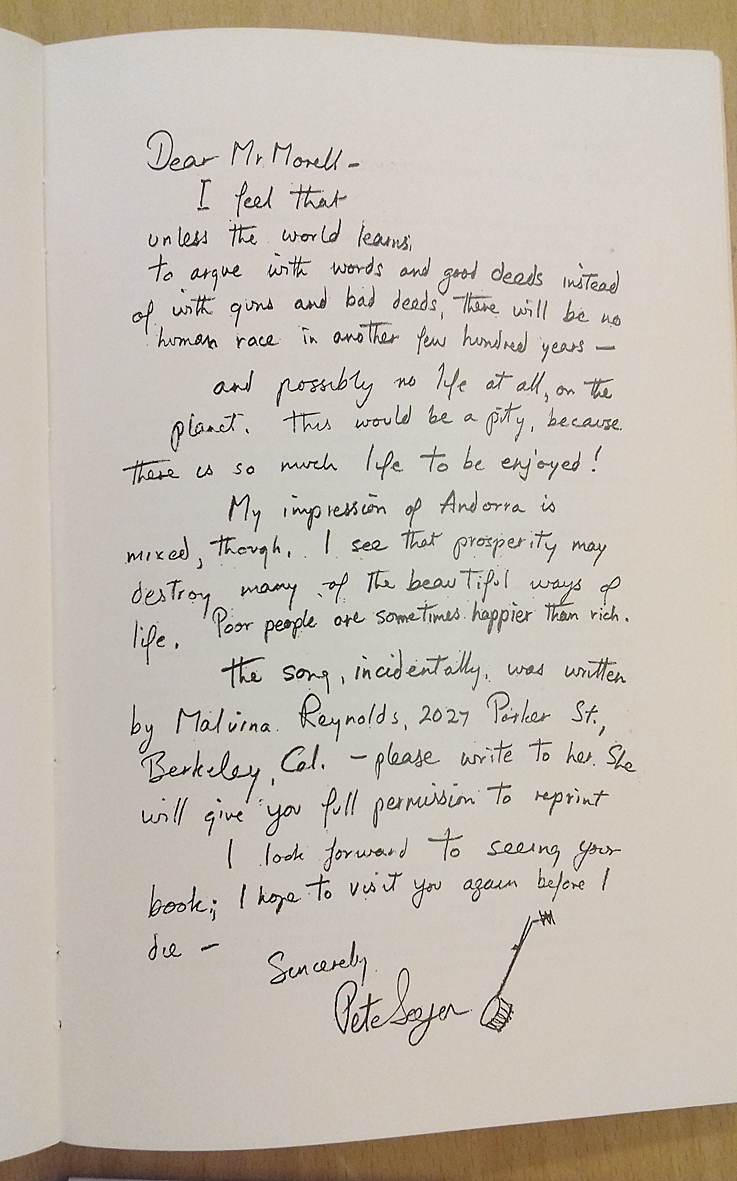 Dear Mr. Morell -
I feel that
unless the world learns,
to argue with words and good deeds instead
of with guns and bad deeds, there will be no
human race in another few hundred years —
and possibly no life at all, on the
planet. This would be a pity, because
there is so much life to be enjoyed!
My impression of Andorra is
mixed, though. I see that prosperity may
destroy many of the beautiful ways of
life. Poor people are sometimes happier than rich.
The song, incidentally, was written
by Malvina Reynolds, 2027 Parker St.,
Berkeley, Cal. - please write to her. She
will give you full permission to reprint
I look forward to seeing your
book; I hope to visit you again before I
die -
Sincerely
Pete Seeger